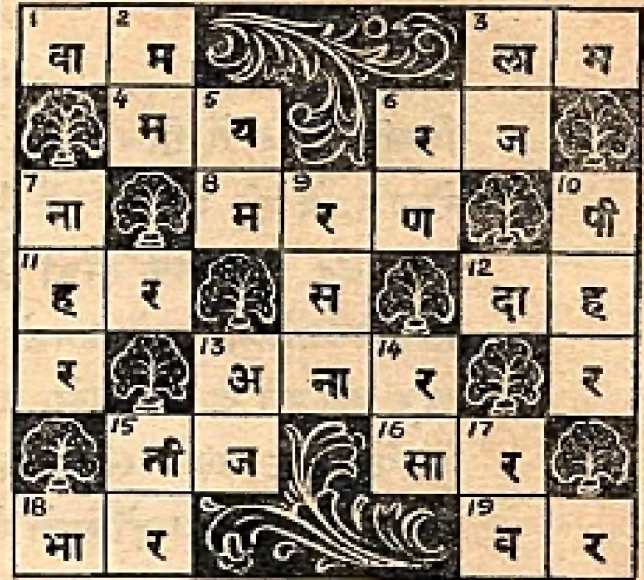 1 वा 2 म 3 ला भ
4 म 5 य 6 र ज
7 ना 8 म 9 र ण 10 पी
11 ह र स 12 दा ह
र 13 अ ना 14 र र
15 ती ज 16 सा 17 र
18 भा र 19 व र